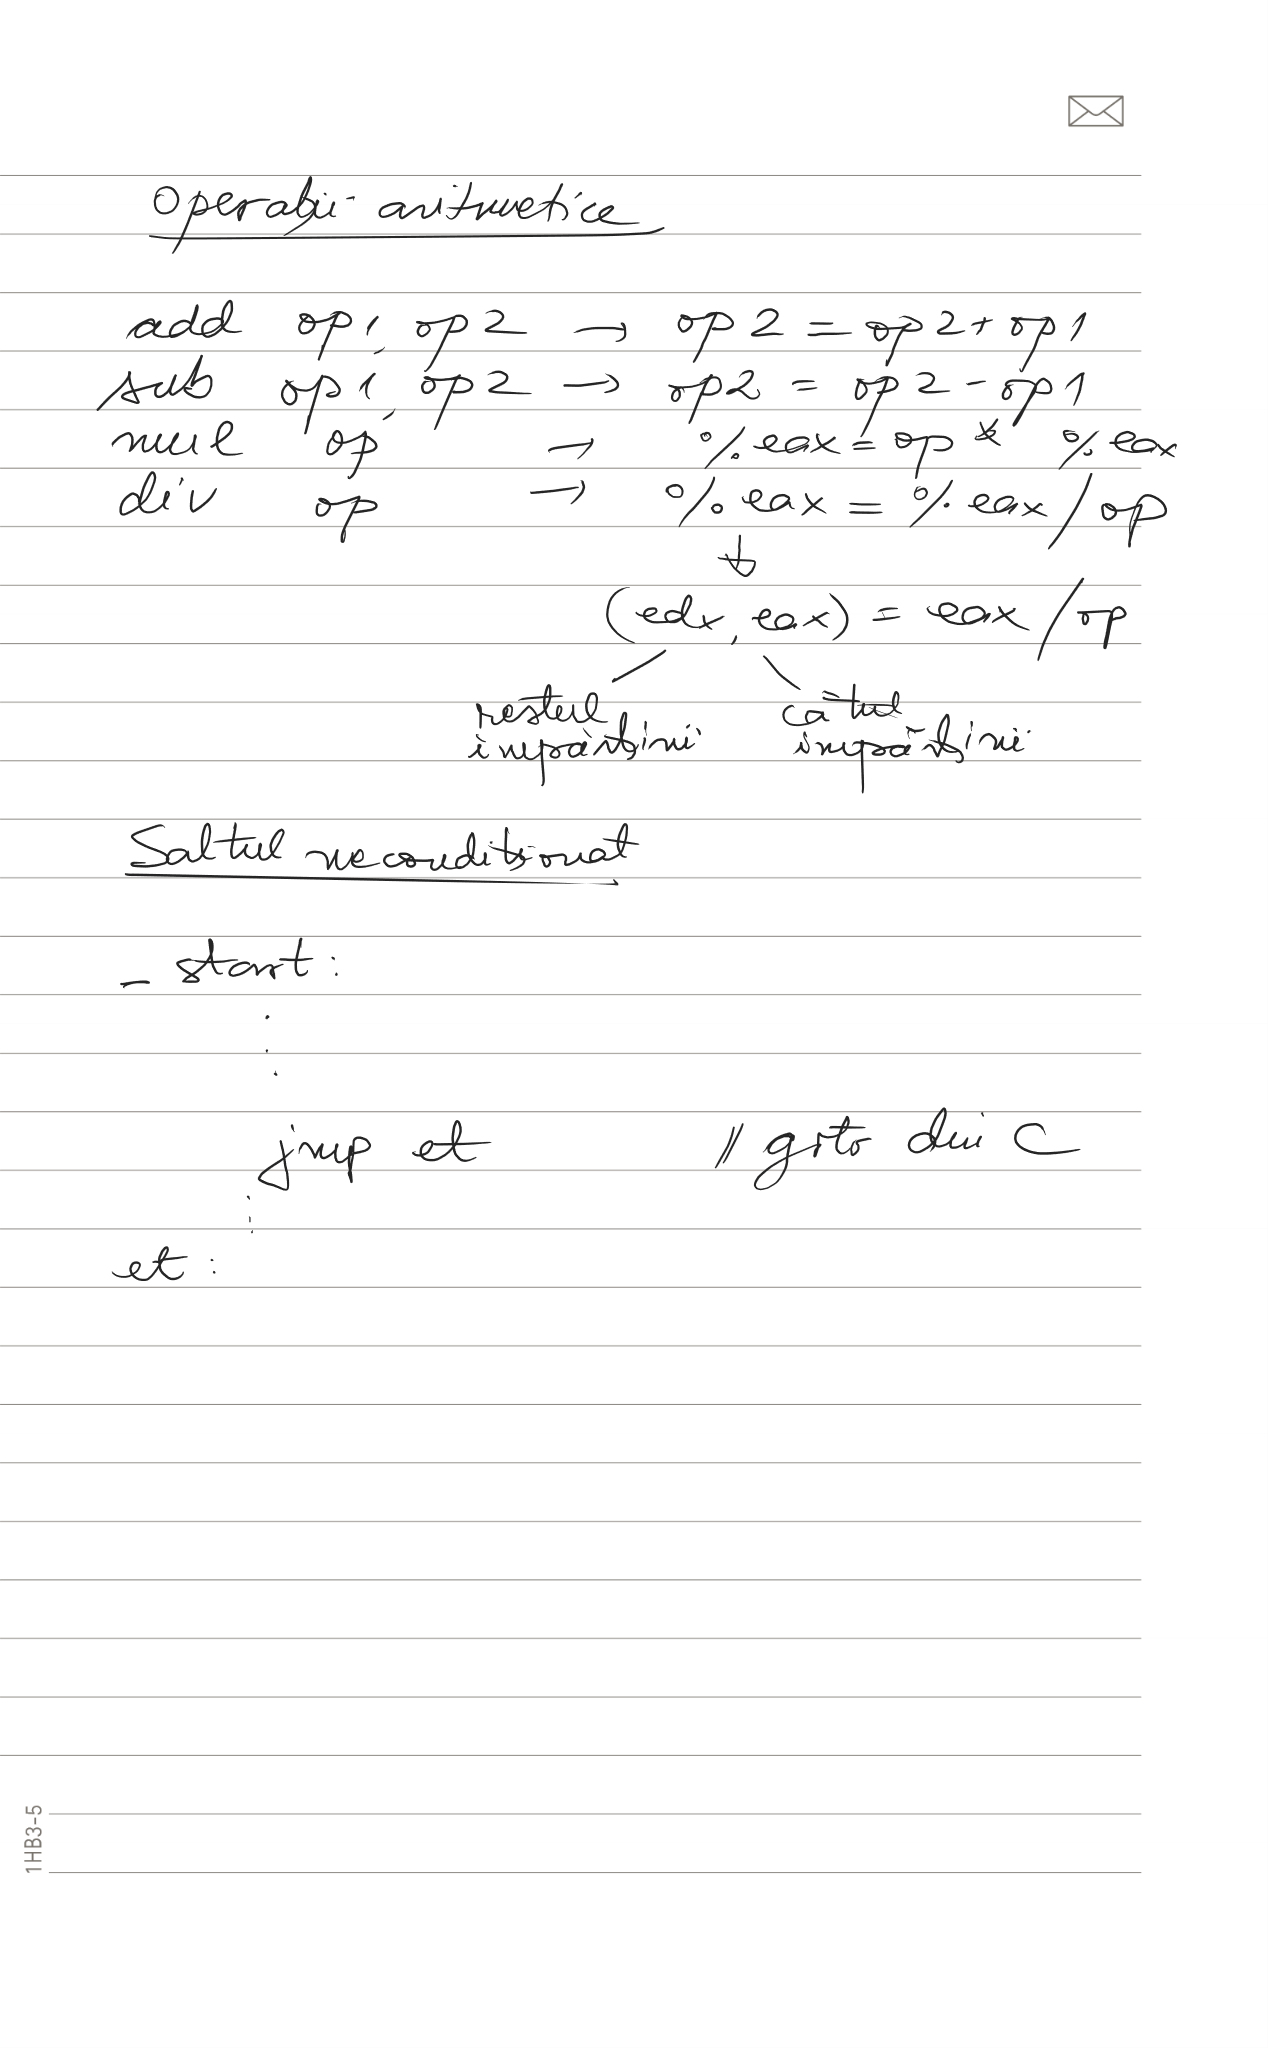 Operații aritmetice
add op1, op2 → op2 = op2 + op1
sub op1, op2 → op2 = op2 - op1
mul op → %eax = op * %eax
div op → %eax = %eax / op
↓
(edx, eax) = eax / op
restul câtul
împărțirii împărțirii
Saltul necondiționat
_start:
.
.
.
jmp et // goto din C
.
.
.
et:
1HB3-5